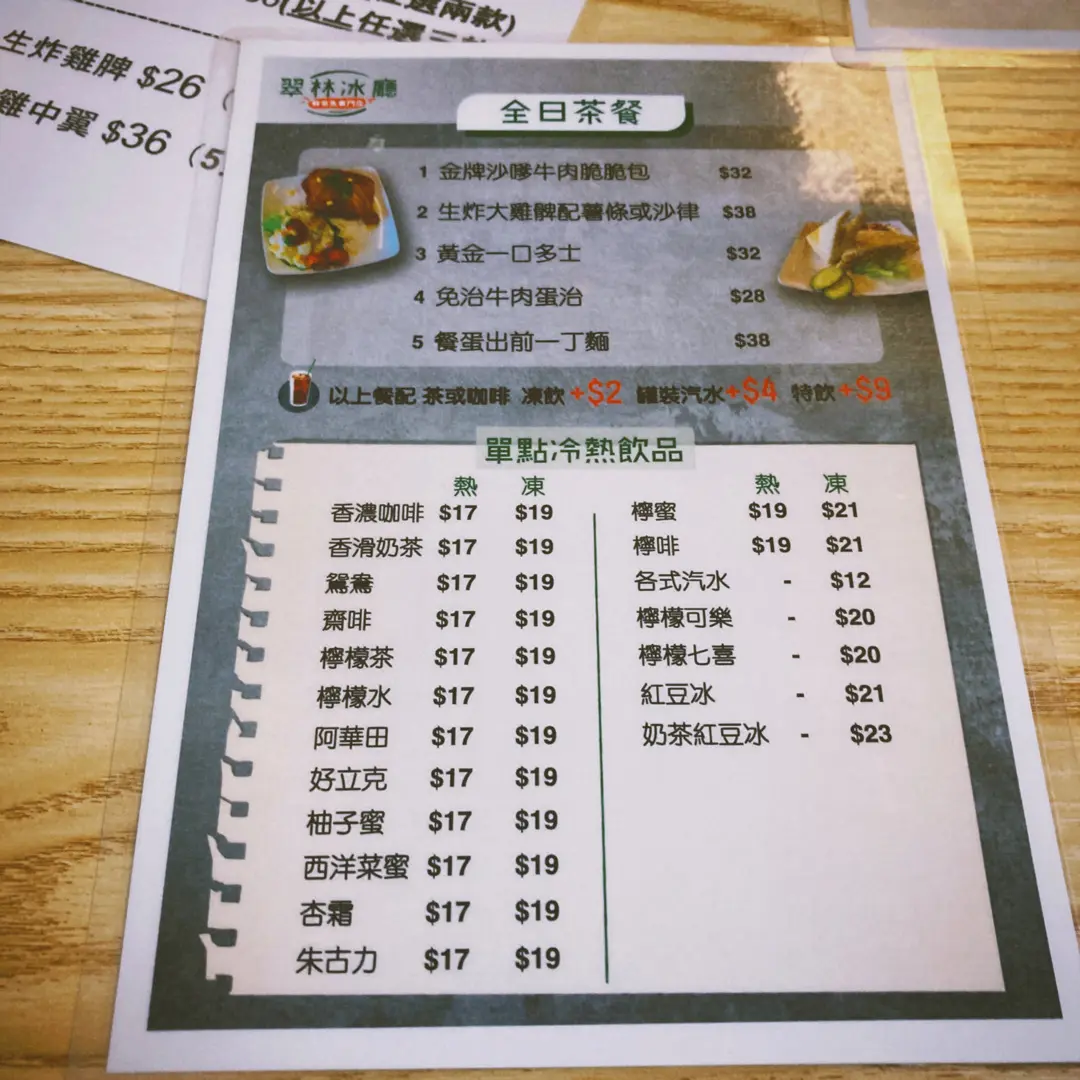 選兩款)
(以上任選三款
生炸雞脾 $26
雞中翼 $36 (5
翠林冰廳
全日茶餐
1 金牌沙嗲牛肉脆脆包 $32
2 生炸大雞髀配薯條或沙律 $38
3 黃金一口多士 $32
4 免治牛肉蛋治 $28
5 餐蛋出前一丁麵 $38
以上餐配 茶或咖啡 凍飲+$2 罐裝汽水+$4 特飲+$9
單點冷熱飲品
熱 凍
香濃咖啡 $17 $19
香滑奶茶 $17 $19
鴛鴦 $17 $19
齋啡 $17 $19
檸檬茶 $17 $19
檸檬水 $17 $19
阿華田 $17 $19
好立克 $17 $19
柚子蜜 $17 $19
西洋菜蜜 $17 $19
杏霜 $17 $19
朱古力 $17 $19
熱 凍
檸蜜 $19 $21
檸啡 $19 $21
各式汽水 - $12
檸檬可樂 - $20
檸檬七喜 - $20
紅豆冰 - $21
奶茶紅豆冰 - $23